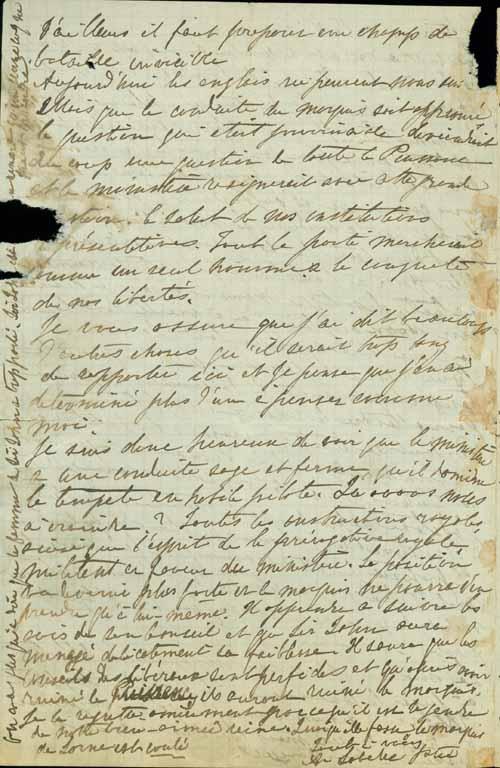 D'ailleurs il faut proposer un champ de
bataille invisible
Aujourd'hui les anglais ne peuvent nous
Mais que la conduite du marquis soit approuvé
la question qui était provinciale deviendrait
du coup une question de toute la Puissance
et le ministère resignerait avec cette grande
le salut de nos institutions
représentatives. Tout le parti marcherait
comme un seul homme a la conquete
de nos libertés.
Je vous assure que j'ai dit beaucoup
d'autres choses qu'il serait trop long
de rapporter ici et je pense que j'en ai
déterminé plus d'un a penser comme
moi.
Je suis donc heureuse de voir que le ministère
a une conduite sage et ferme, qu'il domine
la tempete en habile pilote. Qu'avons nous
a craindre? Toutes les constructions royales
ainsi que l'esprit de la prérogative royale
militent en faveur du ministère. Sa position
va devenir plus forte et le marquis ne pourra s'en
prendre qu'à lui-meme. Il apprendra a suivre les
avis de son conseil et que Sir John aura
menagé délicatement sa faiblesse. Il saura que les
conseils des libéraux sont perfides et qu'après avoir
ruiné le ils auront ruiné le marquis.
Je le regrette amèrement parce qu'il est le gendre
de notre bien-aimée reine. Quoiqu'elle fasse le marquis
de Lorne est coulé
Toute a vous